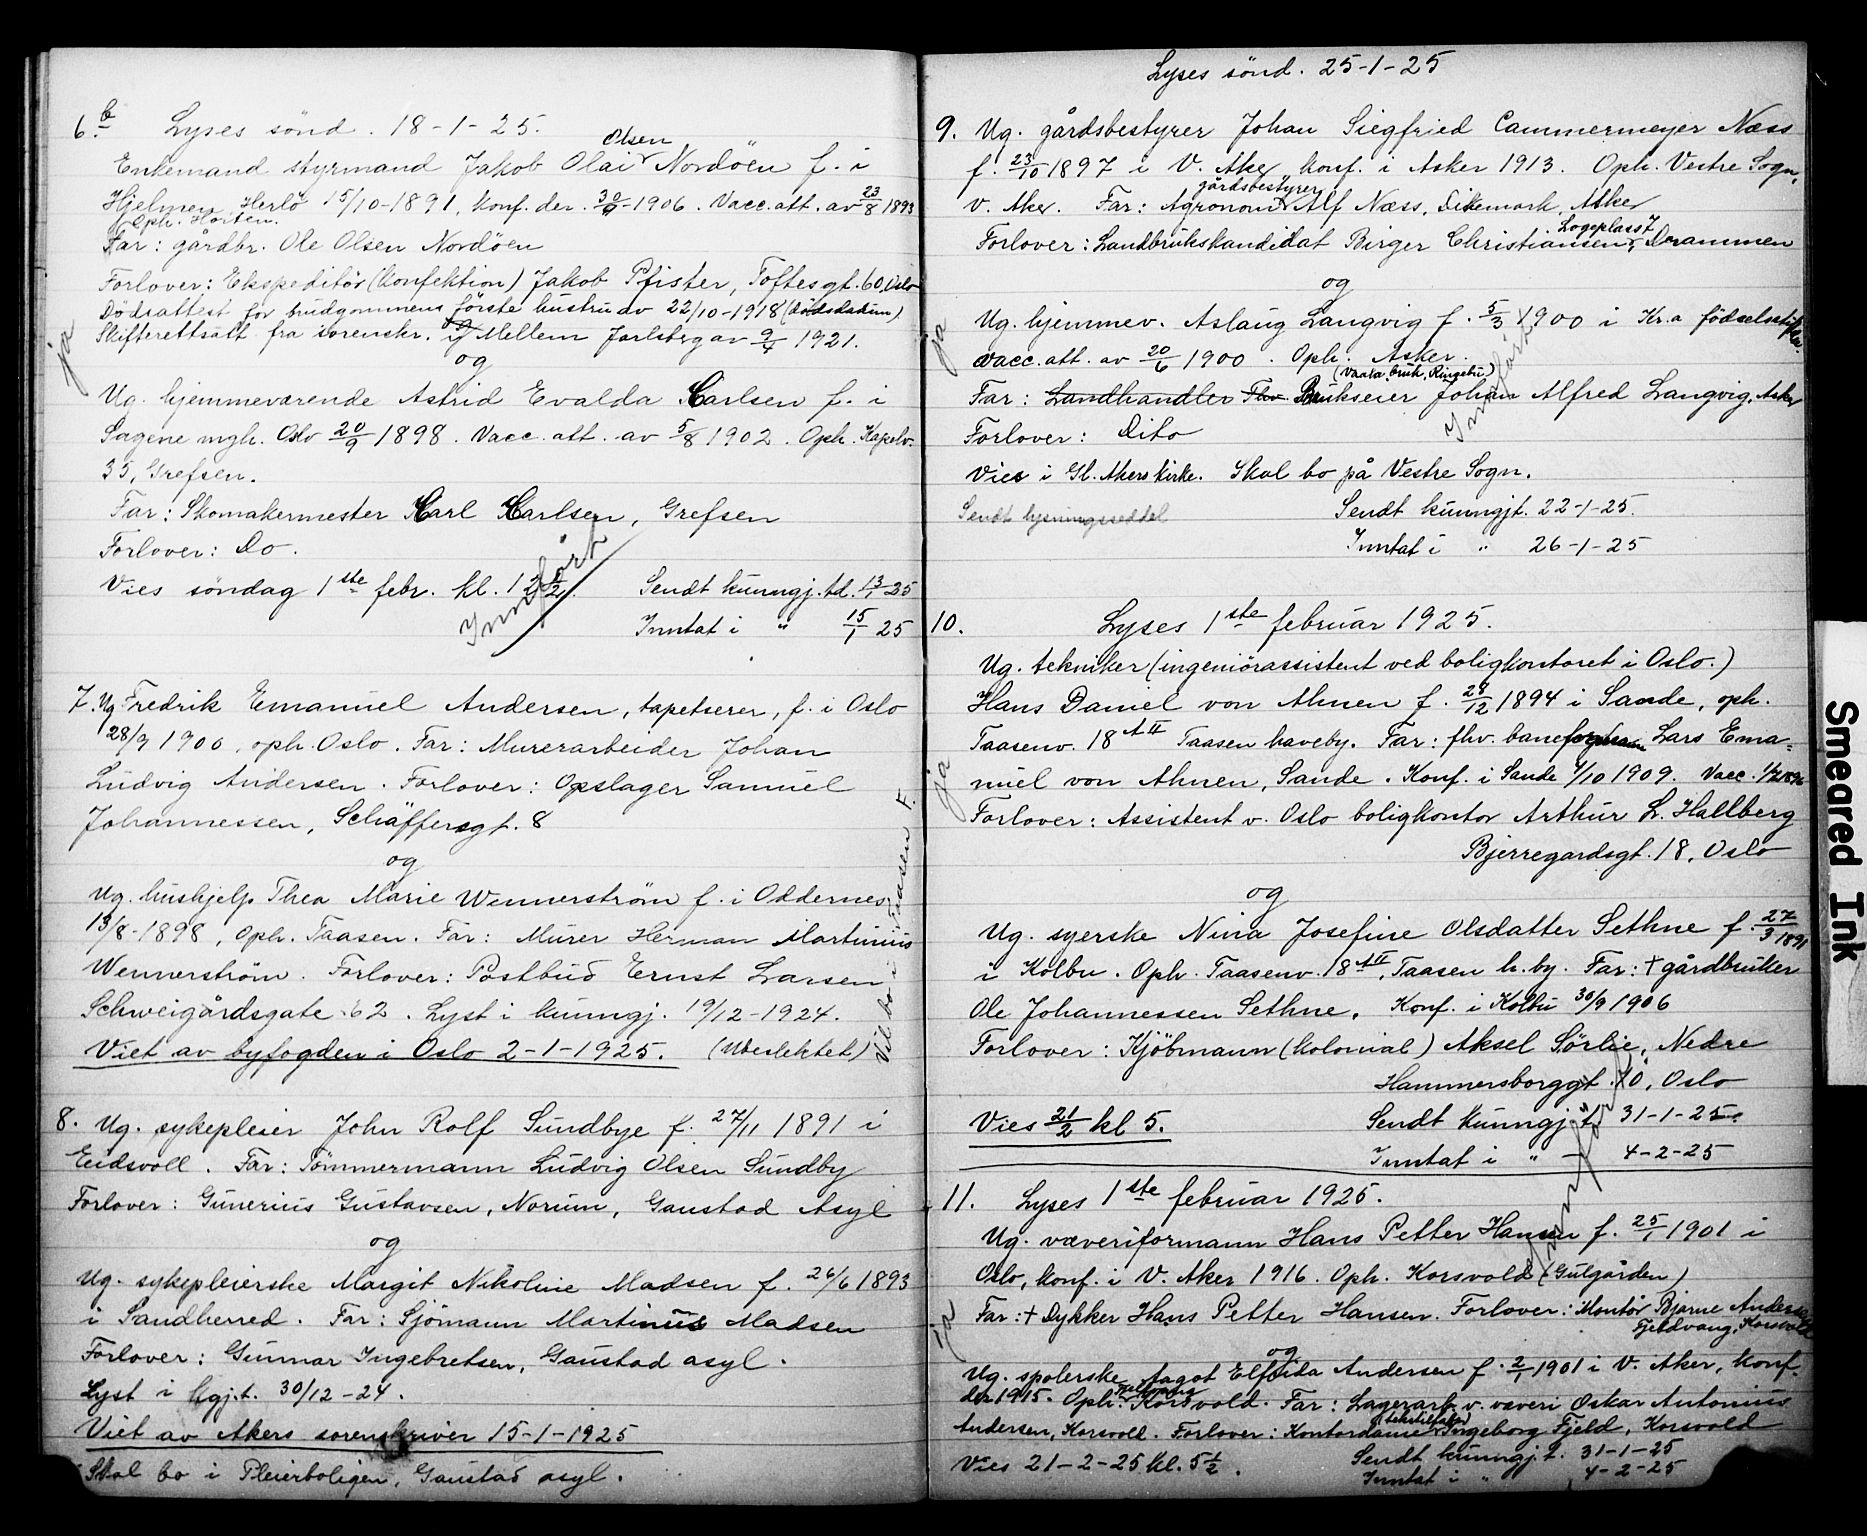 6.b Lyses sønd. 18-1-25.
Enkemand styrmand Jakob Olai Olsen Nordöen f. i
Hjelmen Herlö 15/10-1891, konf. der. 30/9-1906. Vacc.att. av 23/8 1893
Oph. Horten.
Far: gårdbr. Ole Olsen Nordöen
Forlover: Ekspeditör (konfektion) Jakob Pfister, Toftesgt. 60, Oslo
Dödsattest for brudgommens förste hustru av 22/10-1918 (dödsdatum)
Skifterettsatt. fra sorenskr. i Mellem Jarlsberg av 9/4 1921.
og
Ug. hjemmeværende Astrid Evalda Carlsen f. i
Sagene mgh. Oslo 20/9 1898. Vacc. att. av 5/8 1902. Oph. Kapelv.
35, Grefsen.
Far: Skomakermester Carl Carlsen, Grefsen
Forlover: Do.
Vies söndag 1ste febr. kl. 12 1/2. Sendt kunngj.td. 13/1 25
Inntat i " 15/1 25
Innfört
ja
7. Ug. Fredrik Emanuel Andersen, tapetserer, f. i Oslo
28/9 1900, oph. Oslo. Far: Murerarbeider Johan
Ludvig Andersen. Forlover: Opslager Samuel
Johannessen, Schäffersgt. 8
og
Ug. hushjelp Thea Marie Wennerström f. i Oddernes
13/8-1898, Oph. Taasen. Far: Murer Herman Martinius
Wennerström. Forlover: Postbud Ernst Larsen
Schweigårdsgate 62. Lyst i kunngj. 19/12-1924.
Viet av byfogden i Oslo 2-1-1925. (Ubeslektet)
Vil bo i Taasen F.
8. Ug. sykepleier John Rolf Sundbye f. 27/11 1891 i
Eidsvoll. Far: Tömmermann Ludvig Olsen Sundby
Forlover: Gunerius Gustavsen, Norum, Gaustad Asyl
og
Ug. sykepleierske Margit Nikoline Madsen f. 26/6 1893
i Sandherred. Far: Sjömann Martinus Madsen
Forlover: Gunnar Ingebretsen, Gaustad asyl.
Lyst i kgj.t. 30/12-24.
Viet av Akers sorenskriver 15-1-1925
Skal bo i Pleierboligen, Gaustad asyl.
Lyses sönd. 25-1-25
9. Ug. gårdsbestyrer Johan Siegfried Cammermeyer Næss
f. 23/10 1897 i V. Aker konf. i Asker 1913. Oph. Vestre Sogn,
V. Aker. Far: Agronom gårdsbestyrer Alf Næss, Dikemark, Asker
Forlover: Landbrukskandidat Birger Christiansen, Logeplass 7, Drammen
og
Ug. hjemmev. Aslaug Langvig f. 5/3 1900 i Kr.a födselsstift.
vacc. att. av 20/6 1900. Oph. Asker.
(Vaala bruk, Ringebu)
Far: Landhandler Fhv. Brukseier Johan Alfred Langvig, Asker
Forlover: Dito
Vies i Gl. Akers kirke. Skal bo på Vestre Sogn.
Sendt lysningsseddel Sendt kunngjt. 22-1-25.
Inntat i " 26-1-25
Innfört
ja
10. Lyses 1ste februar 1925.
Ug. tekniker (ingeniörassistent ved boligkontoret i Oslo.)
Hans Daniel von Ahnen f. 28/12 1894 i Sande, oph.
Taasenv. 18 A II Taasen haveby. Far: fhv. baneformann Lars Ema=
nuel von Ahnen, Sande. Konf. i Sande 4/10 1909. Vacc.
Forlover: Assistent v. Oslo boligkontor Arthur L. Hallberg
Bjerregardsgt. 18, Oslo
og
Ug. syerske Nina Josefine Olsdatter Sethne f. 27/3 1891
i Kolbu. Oph. Taasenv. 18 A II, Taasen h.by. Far: + gårdbruker
Ole Johannessen Sethne. Konf. i Kolbu 30/9 1906
Forlover: Kjöbmann (kolonial) Aksel Sörlie, Nedre
Hammersborggt. 10, Oslo
Vies 21/2 kl 5. Sendt kunngj.t. 31-1-25.
Inntat i " — 4-2-25
ja
11. Lyses 1ste februar 1925.
Ug. væveriformann Hans Petter Hansen f. 25/1 1901 i
Oslo, konf. i V. Aker 1916. Oph. Korsvold (Gulgården)
Far: + Dykker Hans Petter Hansen. Forlover: Montör Bjarne Andersen
Fjeldvang, Korsvold
og
Ug. spolerske Dagot Elfrida Andersen f. 2/1 1901 i V. Aker, konf.
der 1915. Oph. Fjellvang Korsvold. Far: Lagerarb. v. væveri Oskar Antonius
Andersen, Korsvoll. Forlover: Kontordame Ingeborg Fjeld, Korsvold
Vies 21-2-25 kl. 5 1/2. Sendt kunngj.t. 31-1-25
Inntat i " 4-2-25
Innfört
ja
Smeared Ink